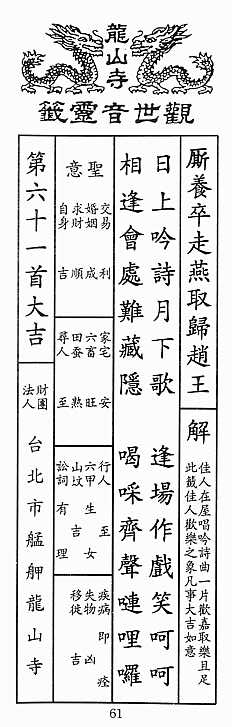 龍山寺
觀世音靈籤
厮養卒走燕取歸趙王
解
佳人在屋唱吟詩曲一片歡嘉取樂且足
此籤佳人歡樂之象凡事大吉如意
日上吟詩月下歌　逢場作戲笑呵呵
相逢會處難藏隱　喝啋齊聲嗹哩囉
聖意
交易　利
婚姻　成
求財　順
自身　吉
家宅　安
六畜　旺
田蚕　熟
尋人　至
行人　至
六甲　生女
山墳　吉
訟詞　有理
疾病　即痊
失物　凶
移徙　吉
第六十一首大吉
財團
法人
台北市艋舺龍山寺
61